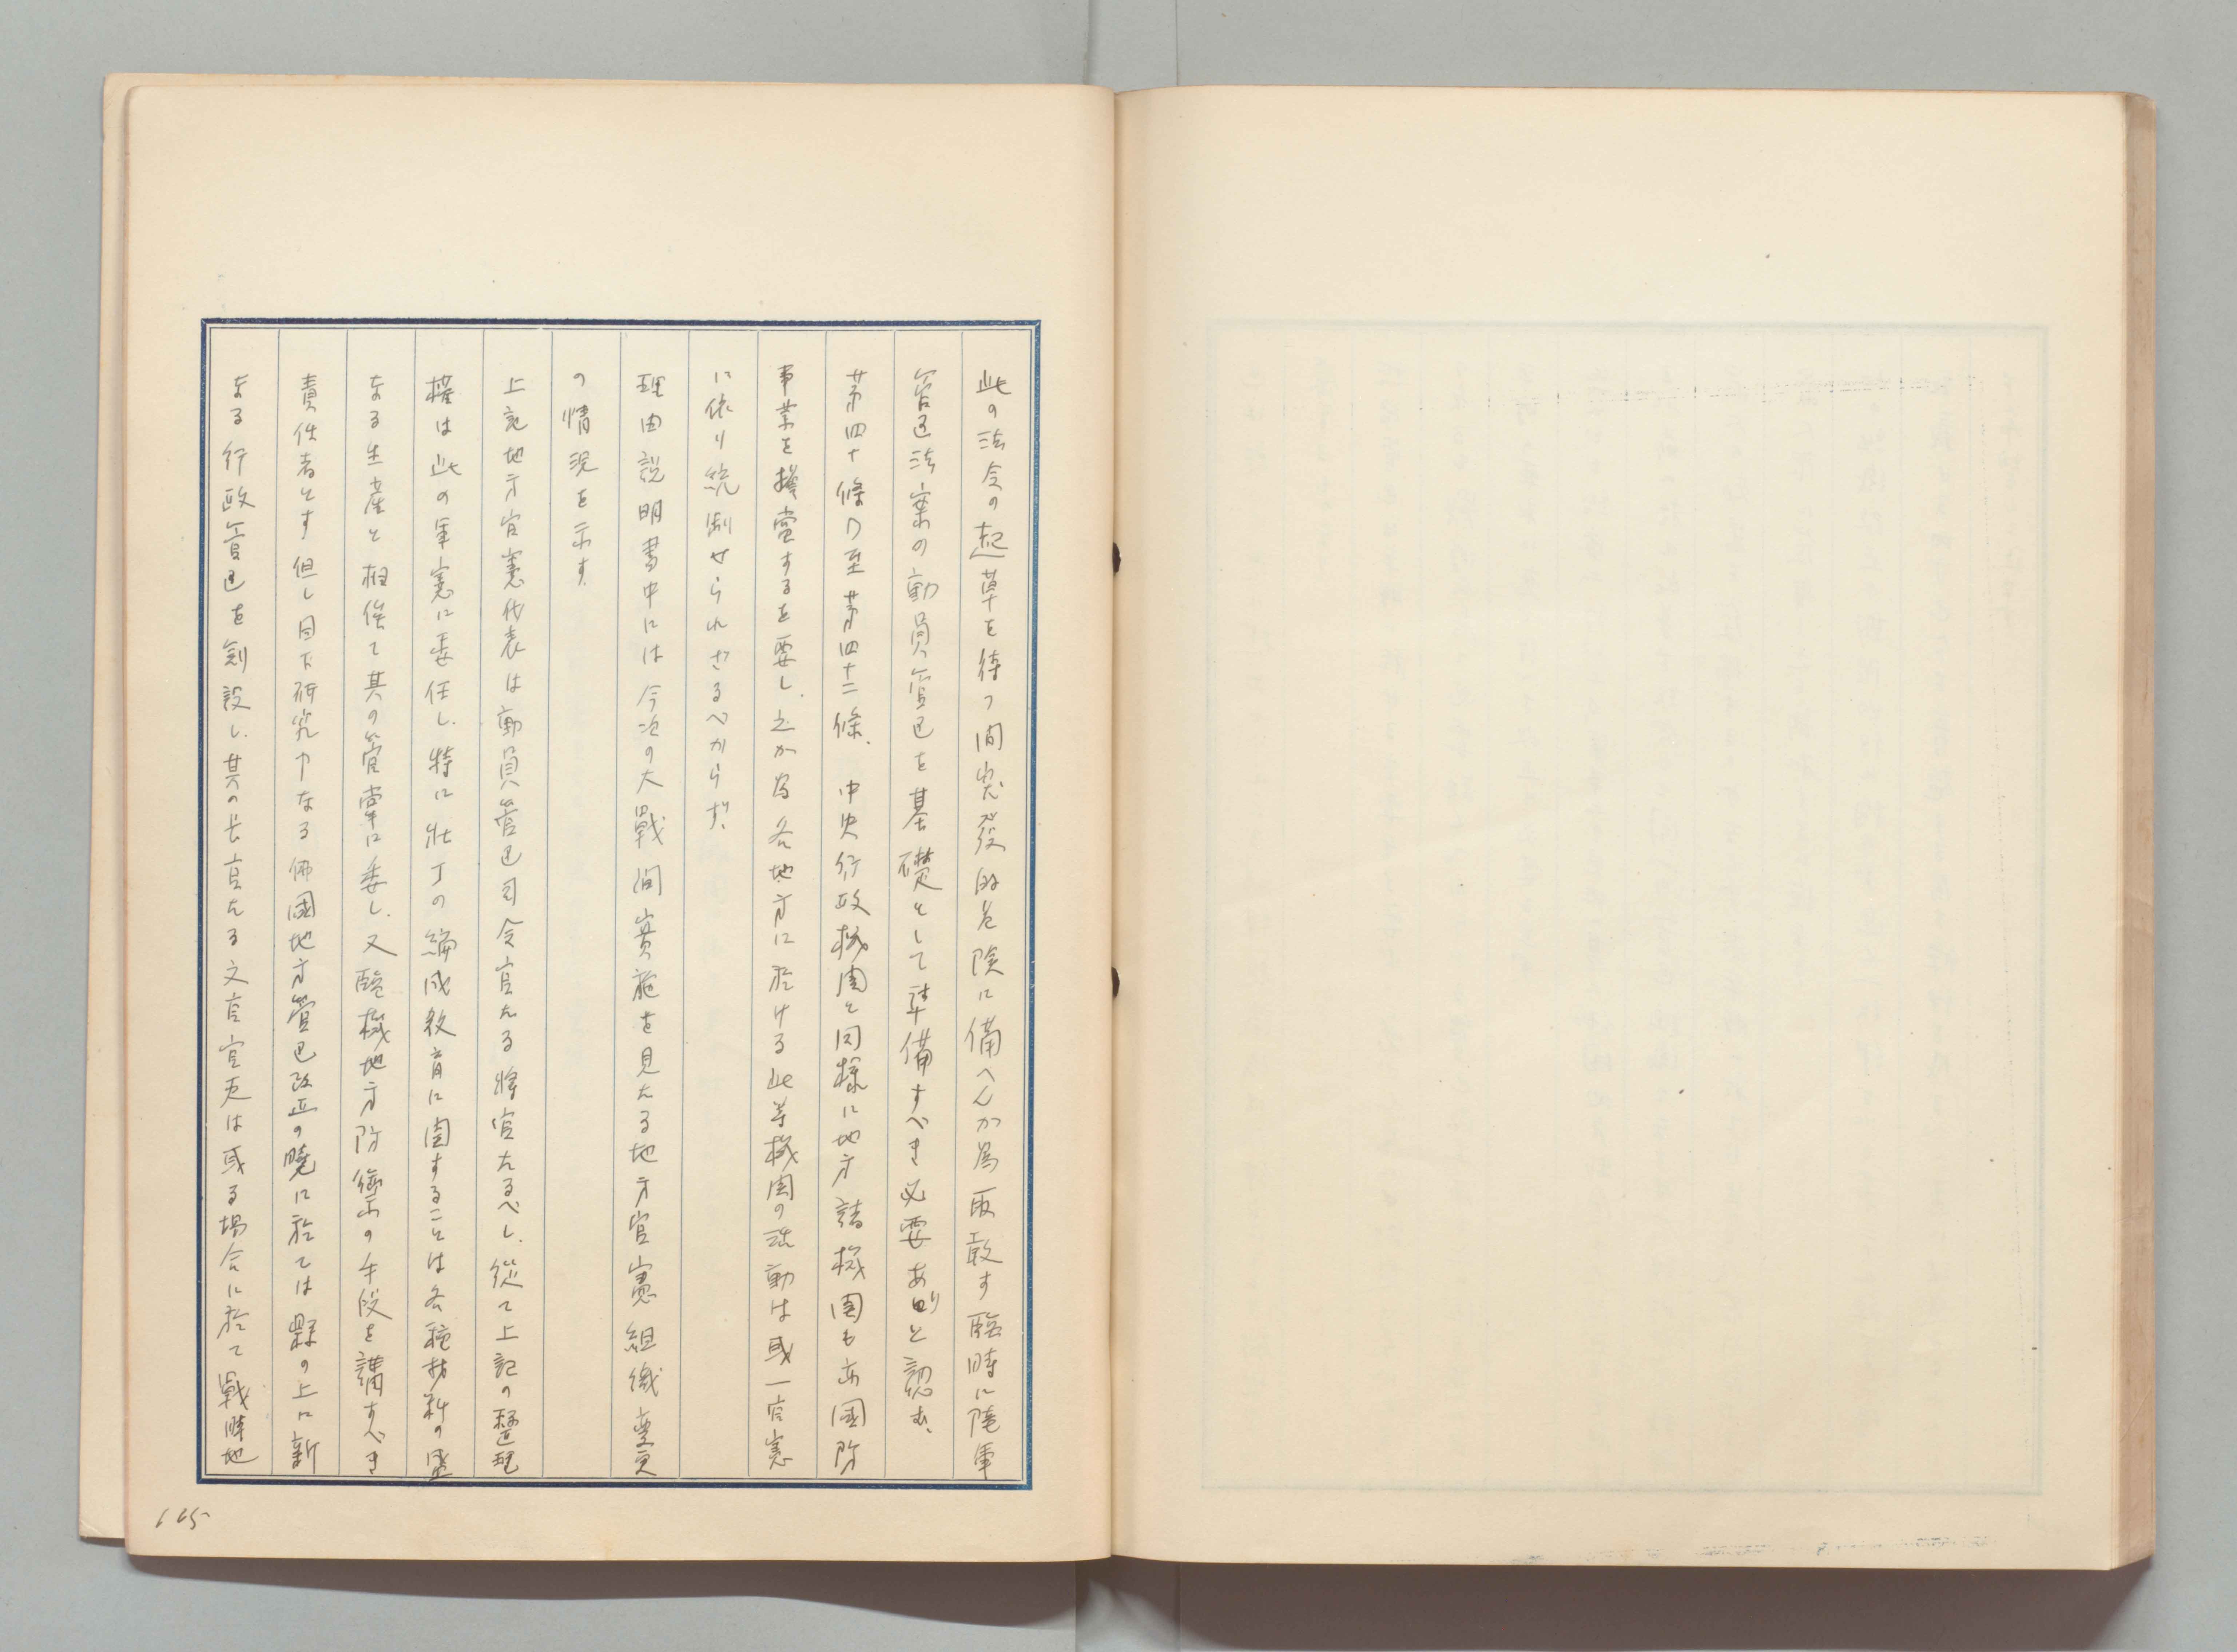 此の法令の起草を待つ間突発的危険に備へんか為取敢す臨時に陸軍
管区法案の動員管区を基礎として準備すべき必要ありと認む、
第四十條乃至第四十二條、中央行政機関と同様に地方諸機関も亦国防
事業を擔當するを要し、之か為各地方に於ける此等機関の活動は或一官憲
に依り統制せられざるべからず、
理由説明書中には今次の大戰间實施を見たる地方官憲組織變更
の情況を示す、
上記地方官憲代表は動員管区司令官たる将官たるべし、従て上記の整理
権は此の軍憲に委任し、特に壮丁の編成教育に関することは各種材料の
なる生産と相俟て其の管掌に委し、又臨機地方防禦の手段を講すべき
責任者とす但し目下研究中なる佛國地方管区改正の曉に於ては縣の上に新
なる行政管区を創設し、其の長官たる文官官吏は或る場合に於て戰時地
165